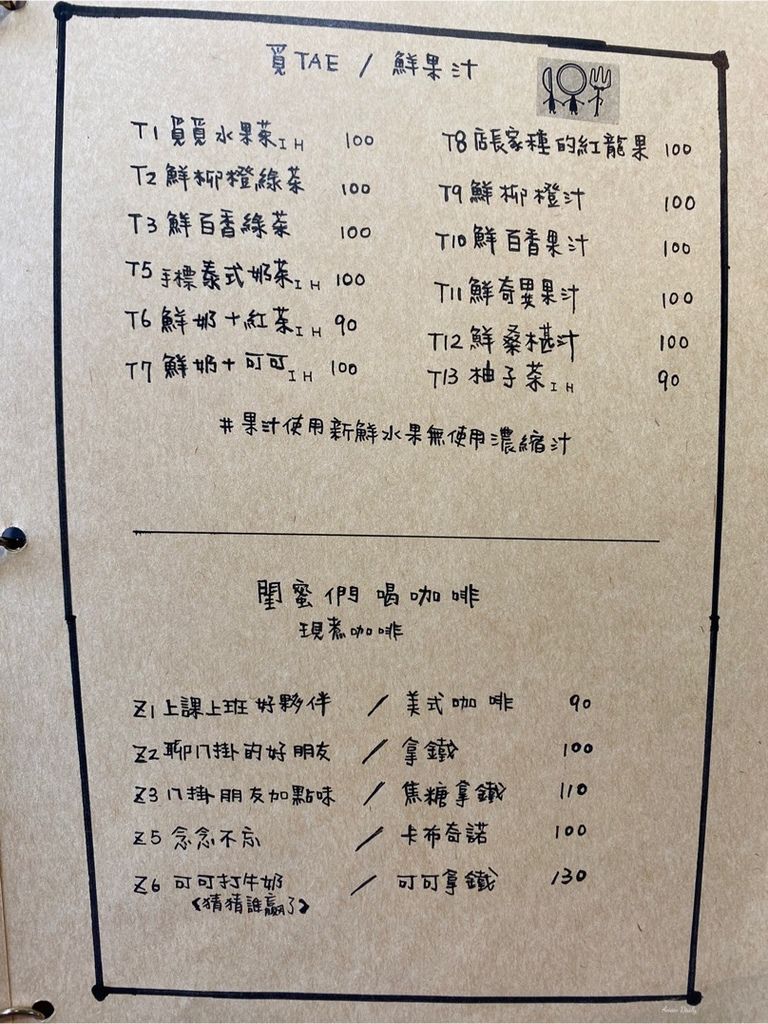 覓TAE / 鮮果汁
T1 覓覓水果茶IH 100
T2 鮮柳橙綠茶 100
T3 鮮百香綠茶 100
T5 手標泰式奶茶IH 100
T6 鮮奶+紅茶IH 90
T7 鮮奶+可可IH 100
T8 店長家種的紅龍果 100
T9 鮮柳橙汁 100
T10 鮮百香果汁 100
T11 鮮奇異果汁 100
T12 鮮桑椹汁 100
T13 柚子茶IH 90
#果汁使用新鮮水果無使用濃縮汁
閨蜜們喝咖啡
現煮咖啡
Z1 上課上班好夥伴 / 美式咖啡 90
Z2 聊八掛的好朋友 / 拿鐵 100
Z3 八掛朋友加點味 / 焦糖拿鐵 110
Z5 念念不忘 / 卡布奇諾 100
Z6 可可打牛奶 / 可可拿鐵 130
<猜猜誰贏了>